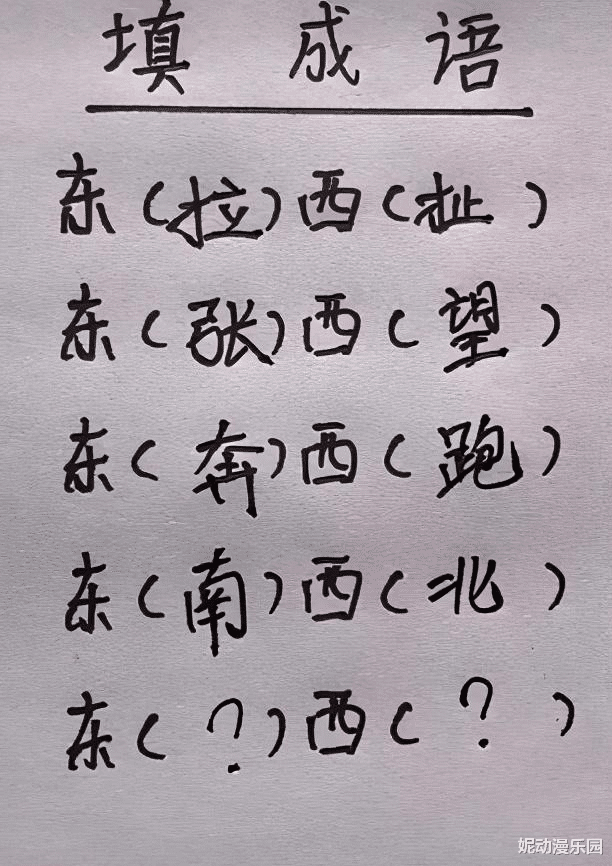 填 成 语
东(拉)西(扯)
东(张)西(望)
东(奔)西(跑)
东(南)西(北)
东(?)西(?)
妮动漫乐园